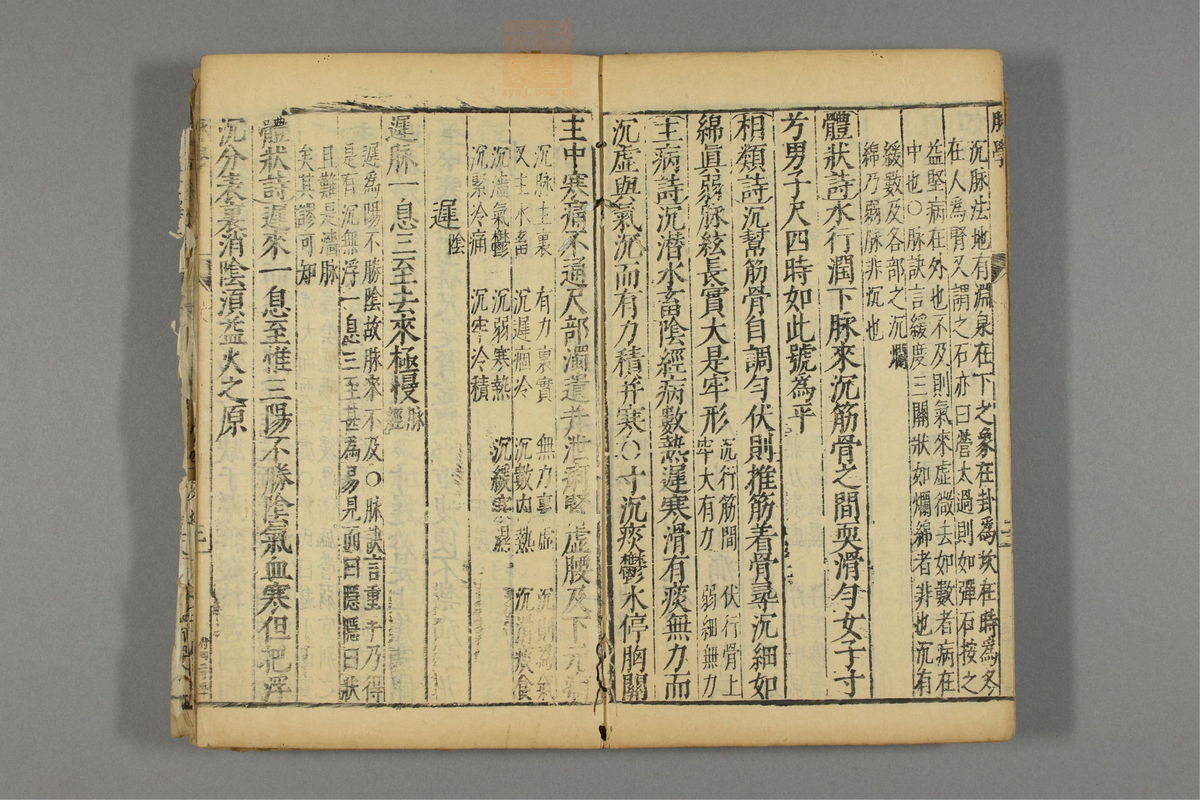 脉學
沉脉法地有淵泉在下之象在卦爲坎在時爲冬
在人爲腎又謂之石亦曰營太過則如彈石按之
益堅病在外也不及則氣來虛微去如數者病在
中也○脉訣言緩度三關狀如爛綿者非也沉有
緩數及各部之沉爛
綿乃弱脉非沉也
體狀詩水行潤下脉來沉筋骨之間耎滑勻女子寸
兮男子尺四時如此號為平
相類詩沉幫筋骨自調勻伏則推筋着骨尋沉細如
綿眞弱脉絃長實大是牢形沉行筋間 伏行骨上
牢大有力 弱細無力
主病詩沉潛水畜陰經病數熱遲寒滑有痰無力而
沉虛與氣沉而有力積并寒○寸沉痰鬱水停胸關
主中寒痛不通尺部濁遺并泄痢腎虛腰及下元
沉脉主裏 有力裏實 無力裏虛 沉則爲氣
又主水畜 沉遲痼冷 沉數内熱 沉滑痰食
沉濇氣鬱 沉弱寒熱 沉緩寒濕
沉緊冷痛 沉牢冷積
遲陰
遲脉一息三至去來極慢脉經
遲爲陽不勝陰故脉來不及○脉訣言重手乃得
是有沉無浮一息三至甚為易見而曰隱隱曰狀
且難是濇脉
矣其謬可知
體狀詩遲來一息至惟三陽不勝陰氣血寒但把浮
沉分表裏消陰須益火之原